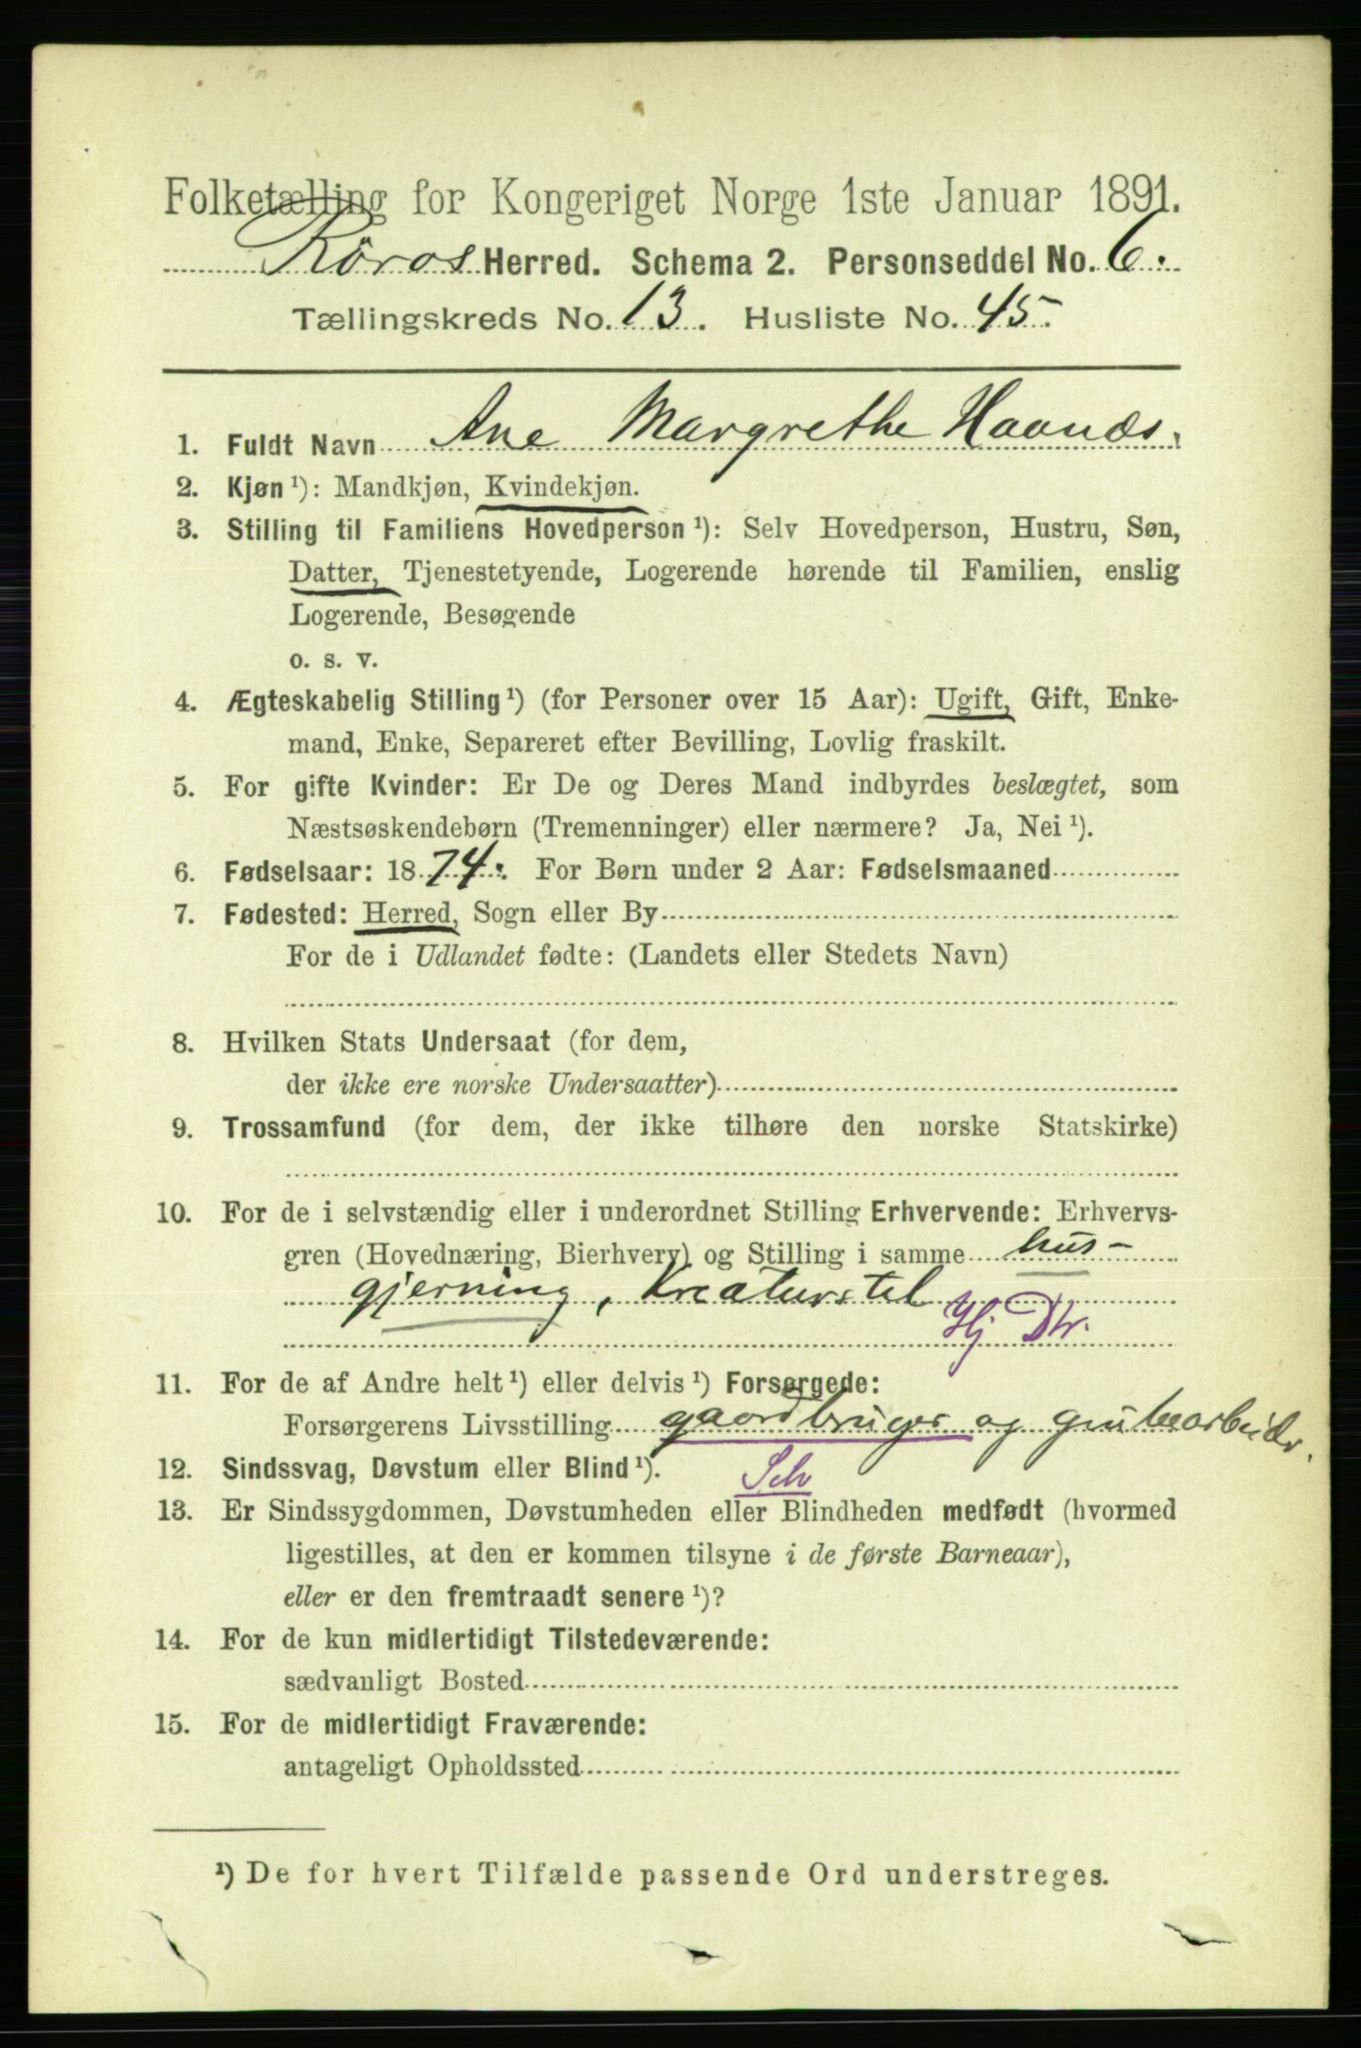 Folketælling for Kongeriget Norge 1ste Januar 1891.
Röros Herred. Schema 2. Personseddel No. 6.
Tællingskreds No. 13. Husliste No. 45.
1. Fuldt Navn Ane Margrethe Haanæs.
2. Kjøn ¹): Mandkjøn, Kvindekjøn.
3. Stilling til Familiens Hovedperson ¹): Selv Hovedperson, Hustru, Søn,
Datter, Tjenestetyende, Logerende hørende til Familien, enslig
Logerende, Besøgende
o. s. v.
4. Ægteskabelig Stilling ¹) (for Personer over 15 Aar): Ugift, Gift, Enke-
mand, Enke, Separeret efter Bevilling, Lovlig fraskilt.
5. For gifte Kvinder: Er De og Deres Mand indbyrdes beslægtet, som
Næstsøskendebørn (Tremenninger) eller nærmere? Ja, Nei ¹).
6. Fødselsaar: 1874. For Børn under 2 Aar: Fødselsmaaned
7. Fødested: Herred, Sogn eller By
For de i Udlandet fødte: (Landets eller Stedets Navn)
8. Hvilken Stats Undersaat (for dem,
der ikke ere norske Undersaatter)
9. Trossamfund (for dem, der ikke tilhøre den norske Statskirke)
10. For de i selvstændig eller i underordnet Stilling Erhvervende: Erhvervs-
gren (Hovednæring, Bierhverv) og Stilling i samme hus-
gjerning, Kreaturstel
Hj Dtr.
11. For de af Andre helt ¹) eller delvis ¹) Forsørgede:
Forsørgerens Livsstilling gaardbruger og grubearbeider.
12. Sindssvag, Døvstum eller Blind ¹). Selv
13. Er Sindssygdommen, Døvstumheden eller Blindheden medfødt (hvormed
ligestilles, at den er kommen tilsyne i de første Barneaar),
eller er den fremtraadt senere ¹)?
14. For de kun midlertidigt Tilstedeværende:
sædvanligt Bosted
15. For de midlertidigt Fraværende:
antageligt Opholdssted
¹) De for hvert Tilfælde passende Ord understreges.